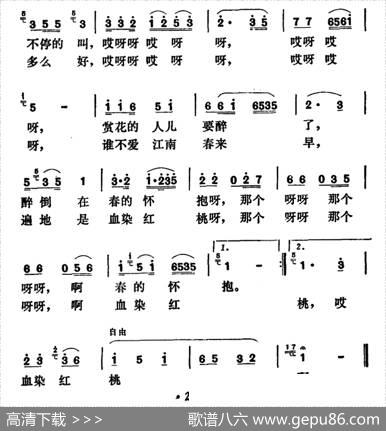 3 5 5 3 | 3 3 2 1 2 5 3 | 2· 3 5 | 7 7 6 5 6 1 |
不停的 叫,哎呀呀 哎 呀 呀, 哎呀 哎
多么 好,哎呀呀 哎 呀 呀, 哎呀 哎
5 - | 1 1 6 5 1 | 6 6 1 6535 | 2· 3 |
呀, 赏花的 人儿 要醉 了,
呀, 谁不爱 江南 春来 早,
5 3 5 1 | 3·2 1·235 | 2 2 0 2 7 | 6 6 3 5 |
醉 倒 在 春的 怀 抱呀,那个 呀呀 那个
遍 地 是 血染 红 桃呀,那个 呀呀 那个
6 6 0 5 6 | 1 5 1 6535 | 1 - :| 1· 3 |
1.
2.
呀呀, 啊 春的 怀 抱。
呀呀, 啊 血染 红 桃, 哎
自由
2 3 2 3 6 | 1 5 1 | 6 5 3 2 | 1 - |
血染 红 桃
·2
高清下载 >>>
歌谱八六 www.gepu86.com